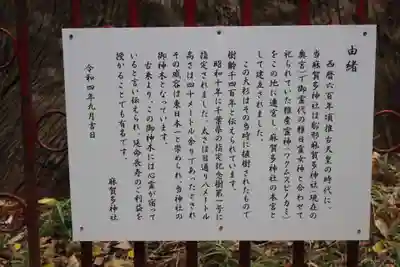 由緒
西暦六百年頃推古天皇の時代に、
当麻賀多神社は船形麻賀多神社(現在の
奥宮)丁御霊代の稚日霊女神と合わせて
祀られていた稚産霊神(ワクムスビノカミ)
をこの地に遷宮し、麻賀多神社の本宮と
して建立されました。
この大杉はその当時に植樹されたもので
樹齢千四百年と伝えられています。
昭和十年に千葉県の指定記念樹第一号に
指定されました。太さは目通り八メートル
高さは四十メートル余りであったとされ
その威容は東日本一と崇められ、当神社の
御神木となっています。
古来より、この御神木には心霊が宿って
いると言い伝えられ、延命長寿のご利益を
授かることでも有名です。
麻賀多神社
令和四年九月吉日